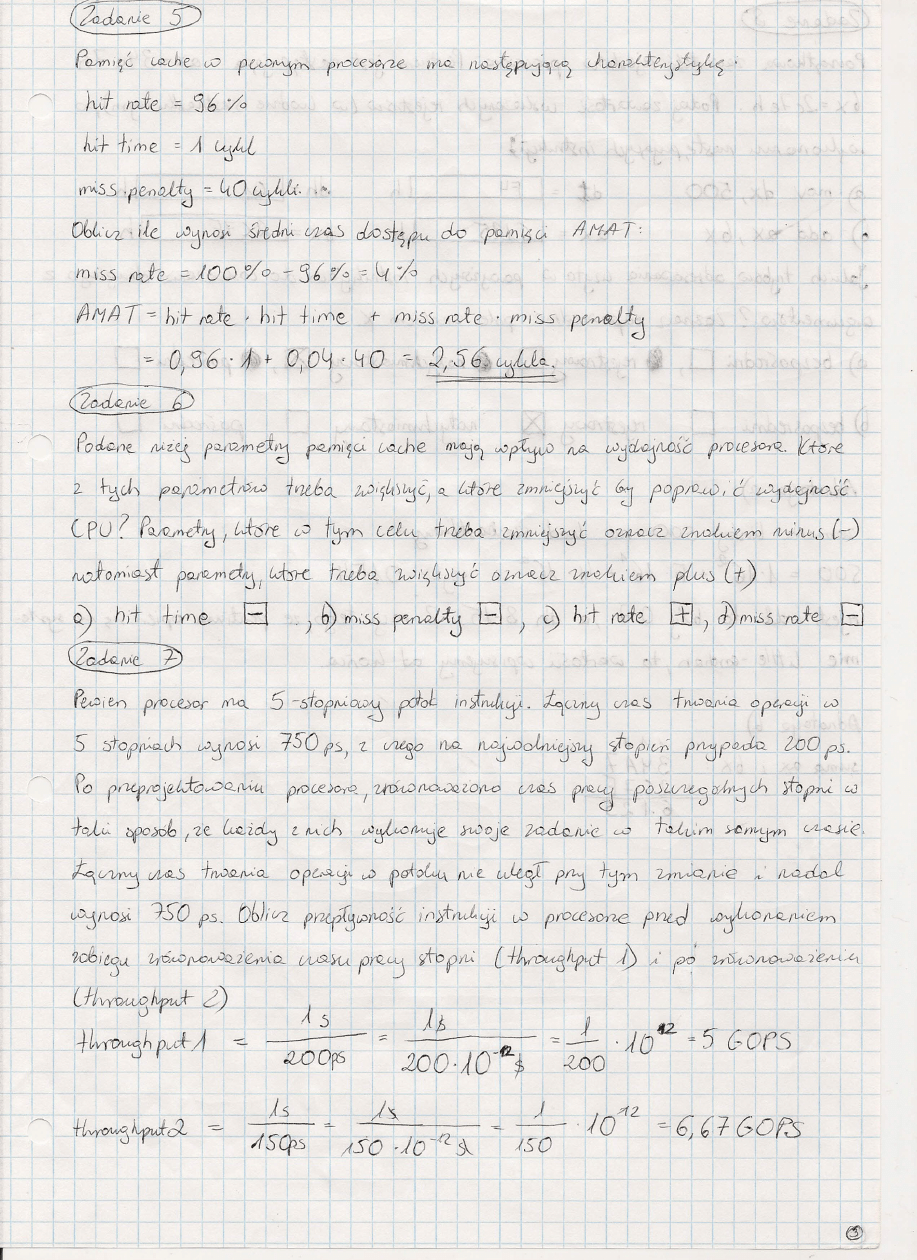 Zadanie 5
Pamięć cache w pewnym procesorze ma następującą charakterystykę.
hit rate = 96%
hit time = 1 cykl
miss penalty = 40 cykli.
Oblicz ile wynosi średni czas dostępu do pamięci AMAT:
miss rate = 100% - 96% = 4%
AMAT = hit rate · hit time + miss rate · miss penalty
= 0,96 · 1 + 0,04 · 40 = 2,56 cykla.
Zadanie 6
Podane niżej parametry pamięci cache mają wpływ na wydajność procesora. Które
z tych parametrów trzeba zwiększyć, a które zmniejszyć by poprawić wydajność
CPU? Parametry, które w tym celu trzeba zmniejszyć oznacz znakiem minus (-)
natomiast parametry, które trzeba zwiększyć oznacz znakiem plus (+)
a) hit time [-] , b) miss penalty [-] , c) hit rate [+] , d) miss rate [-]
Zadanie 7
Pewien procesor ma 5-stopniowy potok instrukcji. Łączny czas trwania operacji w
5 stopniach wynosi 750 ps, z czego na najwolniejszy stopień przypada 200 ps.
Po przeprojektowaniu procesora, zrównoważono czas pracy poszczególnych stopni w
taki sposób, że każdy z nich wykonuje swoje zadanie w takim samym czasie.
Łączny czas trwania operacji w potoku nie uległ przy tym zmianie i nadal
wynosi 750 ps. Oblicz przepływność instrukcji w procesorze przed wykonaniem
zabiegu zrównoważenia czasu pracy stopni (throughput 1) i po zrównoważeniu
(throughput 2)
throughput 1 = 1s / 200ps = 1s / 200·10^-12 s = 1/200 · 10^12 = 5 GOPS
throughput 2 = 1s / 150ps = 1s / 150·10^-12 s = 1/150 · 10^12 = 6,67 GOPS